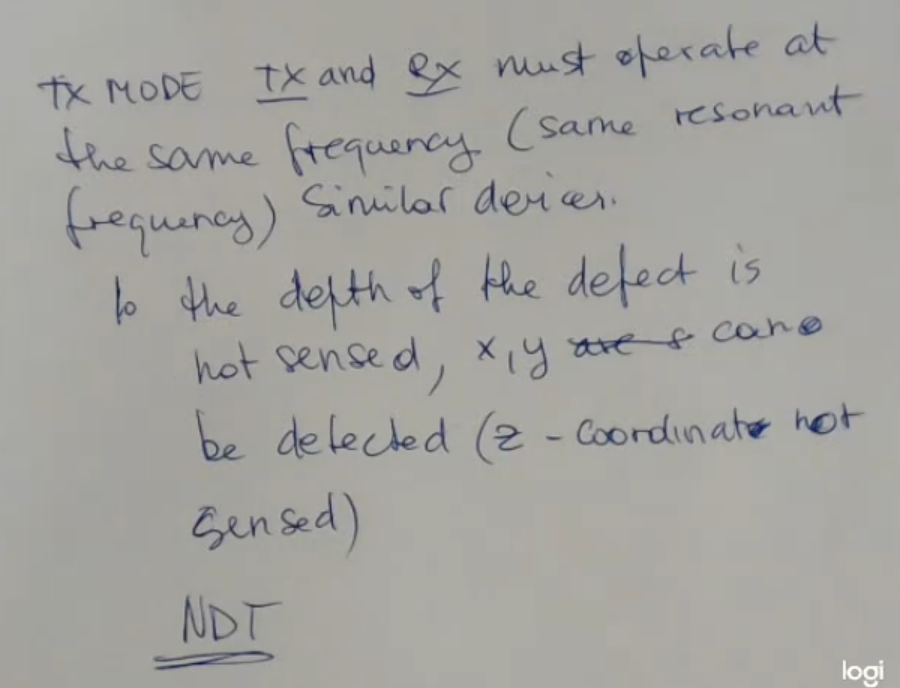 TX MODE TX and RX must operate at
the same frequency (same resonant
frequency) Similar devices.
the depth of the defect is
not sensed, x, y are can
be detected (z - coordinate not
sensed)
NDT
logi